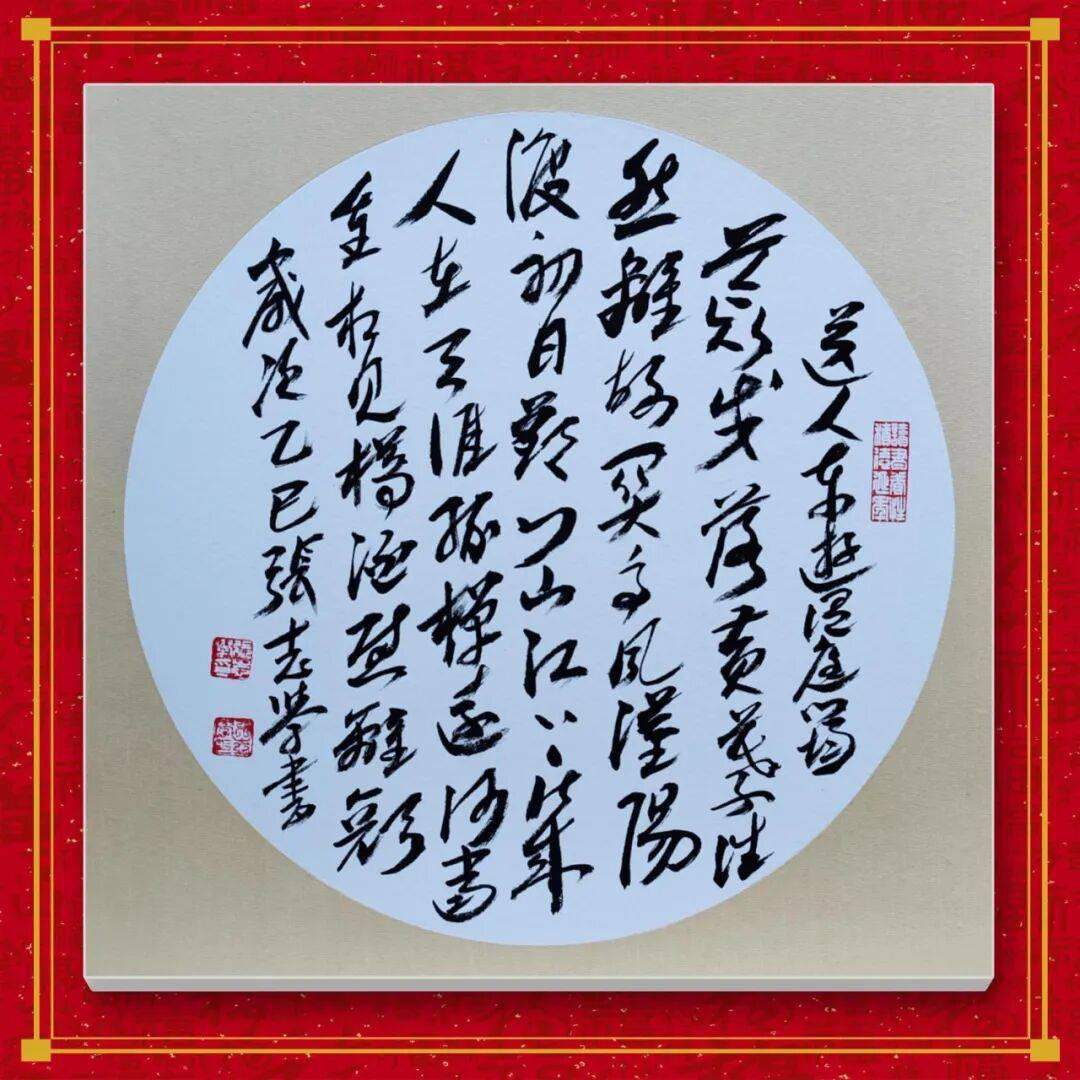 送人東遊温庭筠
荒戍落黄葉浩
然離故関高風漢陽
渡初日郢门山江上幾
人在天涯孤棹還何當
重相見樽酒慰離顔
歲次乙巳張志學書